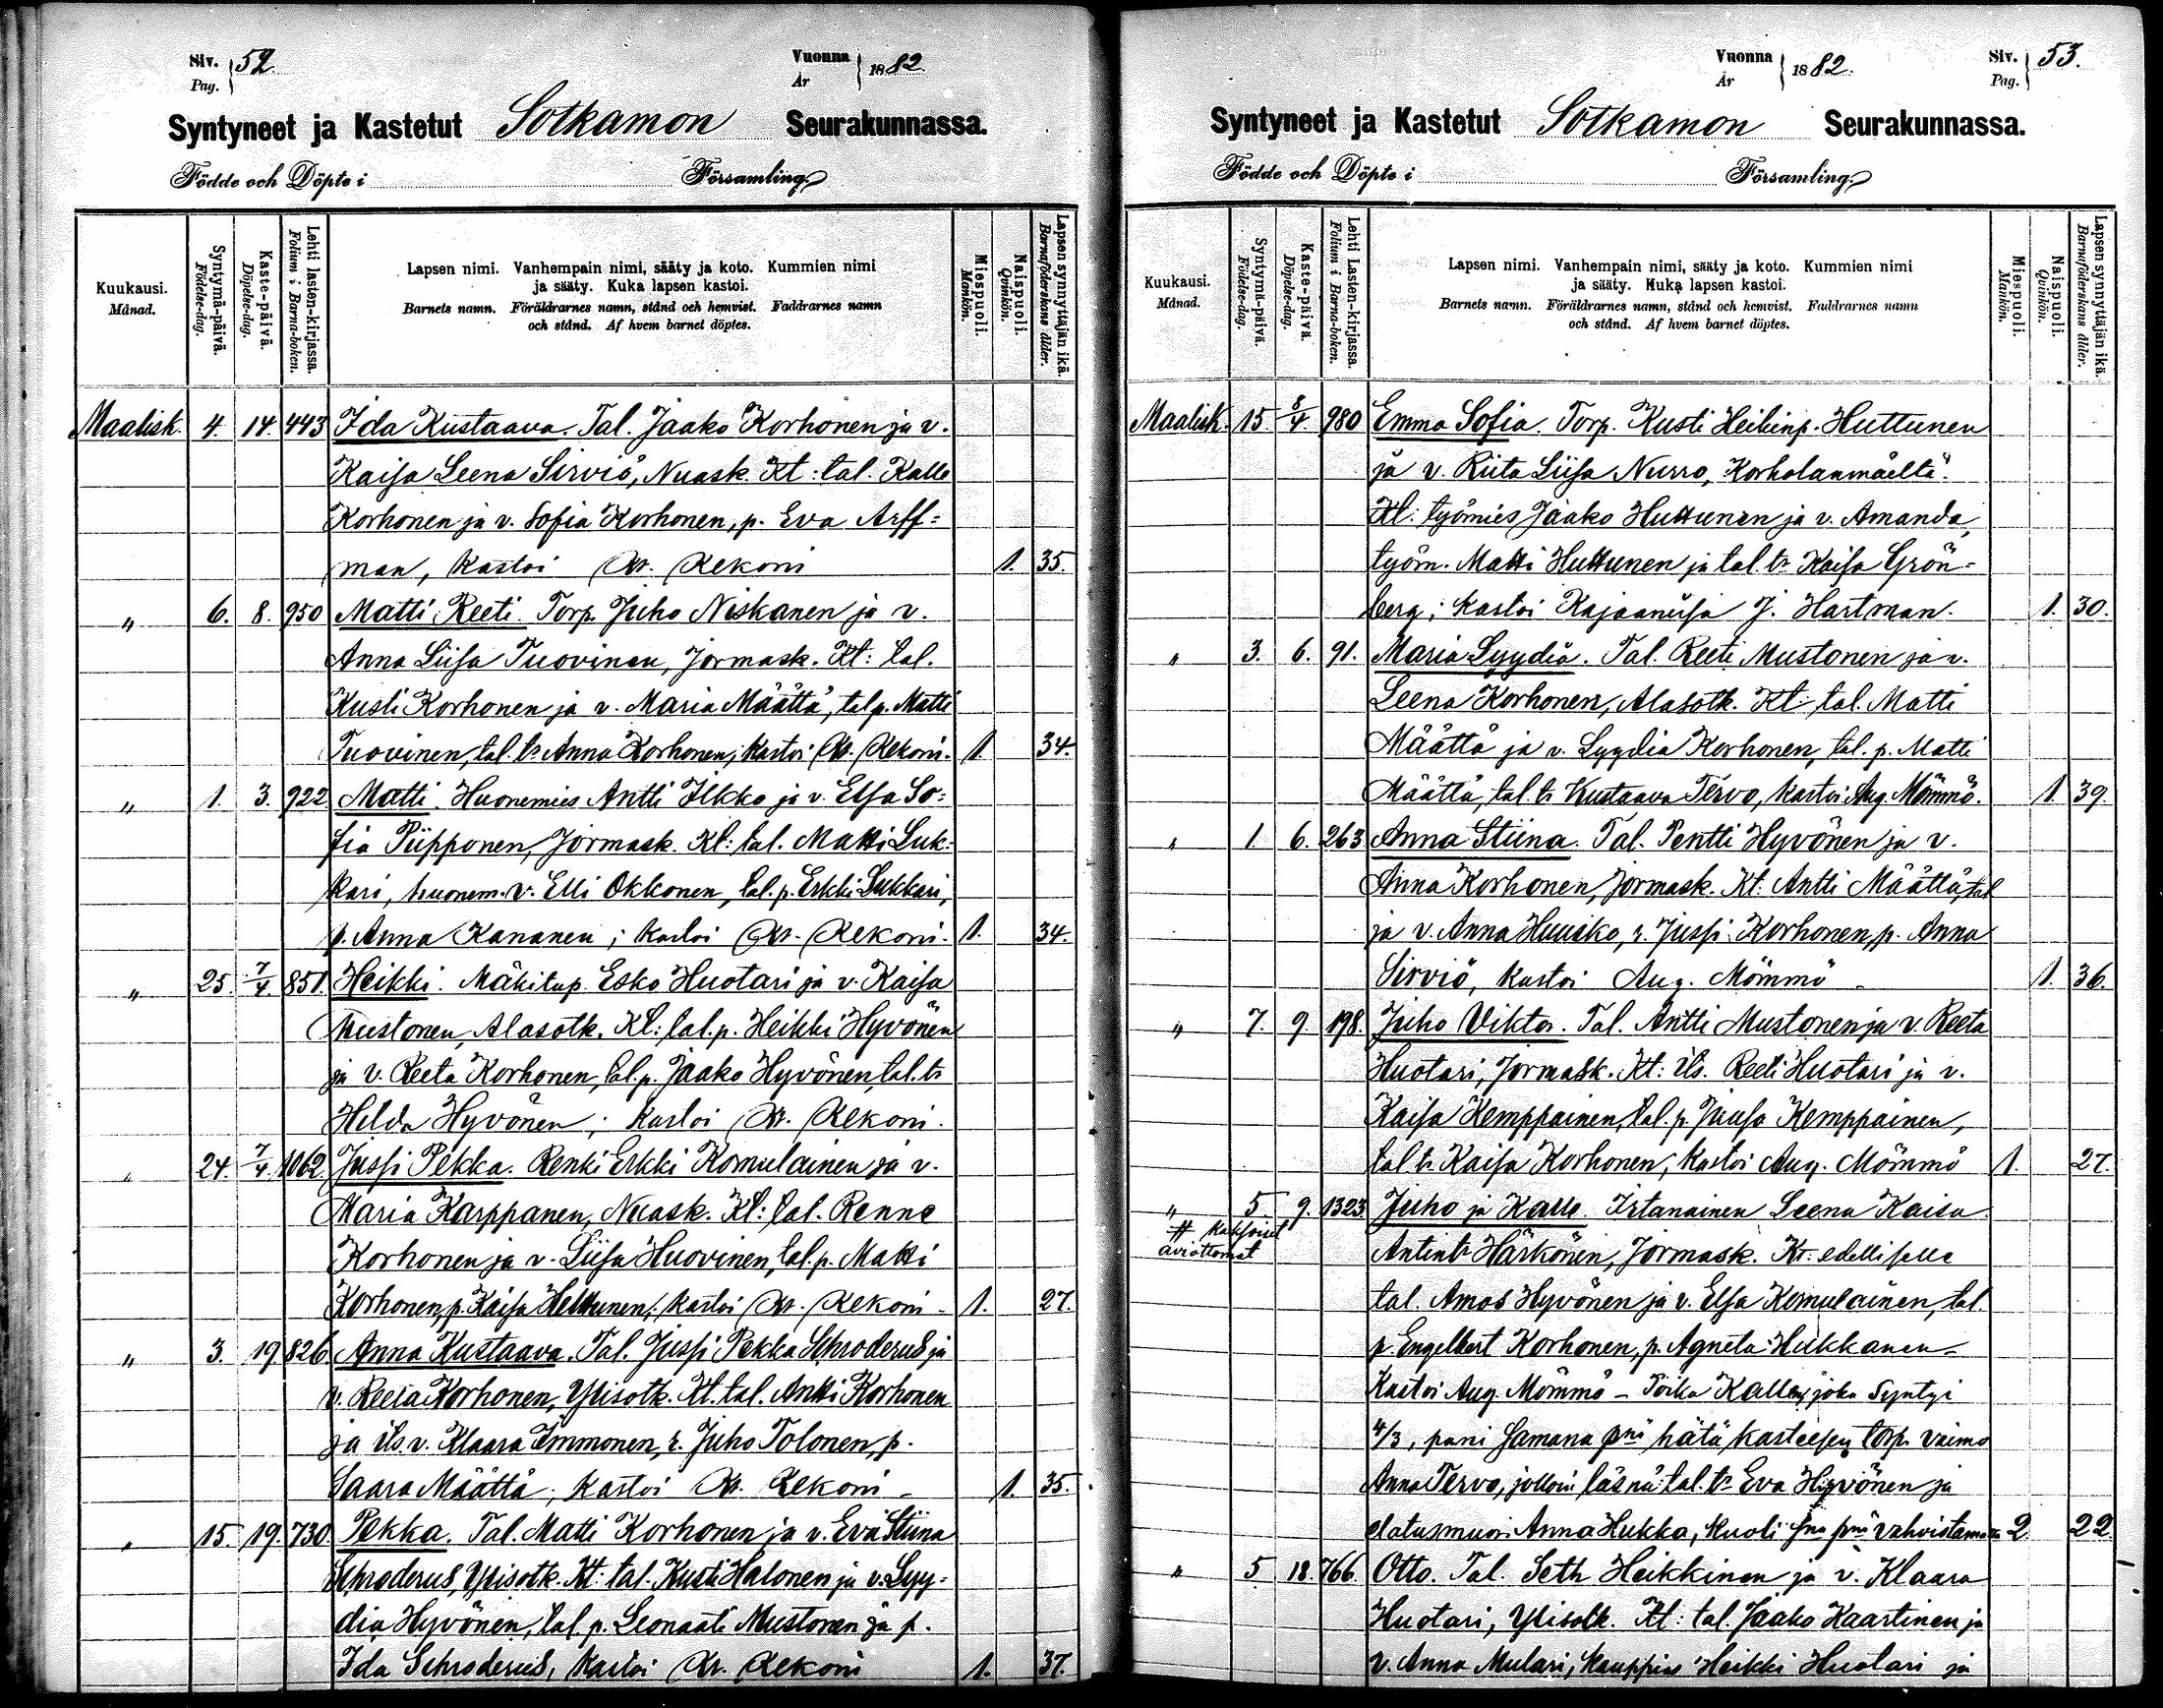 Siv. 52. Vuonna 1882.
Pag. År
Syntyneet ja Kastetut Sotkamon Seurakunnassa.
Födde och Döpte i Församling.
Kuukausi. Månad.
Syntymä-päivä. Födelse-dag.
Kaste-päivä. Döpelse-dag.
Lehti lasten-kirjassa. Folium i Barna-boken.
Lapsen nimi. Vanhempain nimi, sääty ja koto. Kummien nimi
ja sääty. Kuka lapsen kastoi.
Barnets namn. Föräldrarnes namn, stånd och hemvist. Faddrarnes namn
och stånd. Af hvem barnet döptes.
Miespuoli. Mankön.
Naispuoli. Qvinkön.
Lapsen synnyttäjän ikä. Barnaföderskans ålder.
Maalisk. 4. 14. 443 Ida Kustaava. Tal. Jaako Korhonen ja v.
Kaisa Leena Sirviö, Nuask. Kt: tal. Kalle
Korhonen ja v. Sofia Korhonen, p. Eva Arff=
man, kastoi Kr. Rekoni 1. 35.
" 6. 8. 950 Matti Reeti. Torp. Juho Niskanen ja v.
Anna Liisa Tuovinen, Jormask. Kt: tal.
Kusti Korhonen ja v. Maria Määttä, tal p. Matti
Tuovinen, tal. tr Anna Korhonen; kastoi Kr. Rekoni. 1. 34.
" 1. 3. 922 Matti. Huonemies Antti Ilkko ja v. Elsa So=
fia Piipponen, Jormask. Kt: tal. Matti Luk=
kari, huonem. v. Elli Okkonen, tal. p. Erkki Lukkari,
p. Anna Kananen; kastoi Kr. Rekoni. 1. 34.
" 25. 7/4. 851. Heikki. Mäkitup. Esko Huotari ja v. Kaisa
Mustonen, Alasotk. Kt: tal. p. Heikki Hyvönen
ja v. Reeta Korhonen, tal. p. Jaako Hyvönen, tal. tr
Helda Hyvönen; kastoi Kr. Rekoni.
" 24. 7/4. 1062. Jussi Pekka. Renki Erkki Komulainen ja v.
Maria Karppanen, Nuask. Kt: tal. Renne
Korhonen ja v. Liisa Huovinen, tal. p. Matti
Korhonen, p. Kaisa Helttunen; kastoi Kr. Rekoni. 1. 27.
" 3. 19. 826 Anna Kustaava. Tal. Jussi Pekka Schroderus ja
v. Reeta Korhonen, Ylisotk. Kt. tal. Antti Korhonen
ja its. v. Klaara Immonen, r. Juho Tolonen, p.
Saara Määttä; kastoi Kr. Rekoni. 1. 35.
" 15. 19. 730. Pekka. Tal. Matti Korhonen ja v. Eva Stiina
Schroderus, Ylisotk. Kt: tal. Kusti Halonen ja v. Lyy=
dia Hyvönen, tal. p. Leonaati Mustonen ja p.
Ida Schroderus, kastoi Kr. Rekoni 1. 37.
Vuonna 1882. Siv. 53.
År Pag.
Syntyneet ja Kastetut Sotkamon Seurakunnassa.
Födde och Döpte i Församling.
Kuukausi. Månad.
Syntymä-päivä. Födelse-dag.
Kaste-päivä. Döpelse-dag.
Lehti Lasten-kirjassa. Folium i Barna-boken.
Lapsen nimi. Vanhempain nimi, sääty ja koto. Kummien nimi
ja sääty. Kuka lapsen kastoi.
Barnets namn. Föräldrarnes namn, stånd och hemvist. Faddrarnes namn
och stånd. Af hvem barnet döptes.
Miespuoli. Mankön.
Naispuoli. Qvinkön.
Lapsen synnyttäjän ikä. Barnaföderskans ålder.
Maalisk. 15 8/4 980 Emma Sofia. Torp. Kusti Heikinp. Huttunen
ja v. Riita Liisa Nurro, Korholanmäeltä.
Kt: työmies Jaako Huttunen ja v. Amanda,
työm. Matti Huttunen ja tal. tr Kaisa Grön=
berg; kastoi Kajaanissa J. Hartman. 1. 30.
" 3. 6. 91. Maria Lyydia. Tal. Reeti Mustonen ja v.
Leena Korhonen, Alasotk. Kt: tal. Matti
Määttä ja v. Lyydia Korhonen, tal. p. Matti
Määttä, tal. tr Kustaava Tervo, kastoi Aug. Mömmö. 1. 39.
" 1. 6. 263 Anna Stiina. Tal. Pentti Hyvönen ja v.
Anna Korhonen, Jormask. Kt: Antti Määttä, tal
ja v. Anna Huusko, r. Jussi Korhonen, p. Anna
Sirviö, kastoi Aug. Mömmö. 1. 36.
" 7. 9. 198. Juho Viktor. Tal. Antti Mustonen ja v. Reeta
Huotari, Jormask. Kt: its. Reeti Huotari ja v.
Kaisa Kemppainen, tal. p. Juusa Kemppainen,
tal. tr Kaisa Korhonen; kastoi Aug. Mömmö 1. 27.
" 5 9. 1323 Juho ja Kalle. Irtanainen Leena Kaisa
# kaksoiset
aviottomat
Antintr Härkönen, Jormask. Kt: edelliselle
tal. Amos Hyvönen ja v. Elsa Komulainen, tal.
p. Engelbert Korhonen, p. Agneta Hukkanen.
Kastoi Aug. Mömmö - Poika Kallen, joka syntyi
4/3, pani samana pnä hätä kasteesen torp. vaimo
Anna Tervo, jolloin läsnä: tal. tr Eva Hyvönen ja
elatusmuori Anna Hukka, kuoli sna pnä vahvistamatta 2. 22.
" 5 18. 766. Otto. Tal. Seth Heikkinen ja v. Klaara
Huotari, Ylisotk. Kt: tal. Jaako Kaartinen ja
v. Anna Mulari, kauppias Heikki Huotari ja